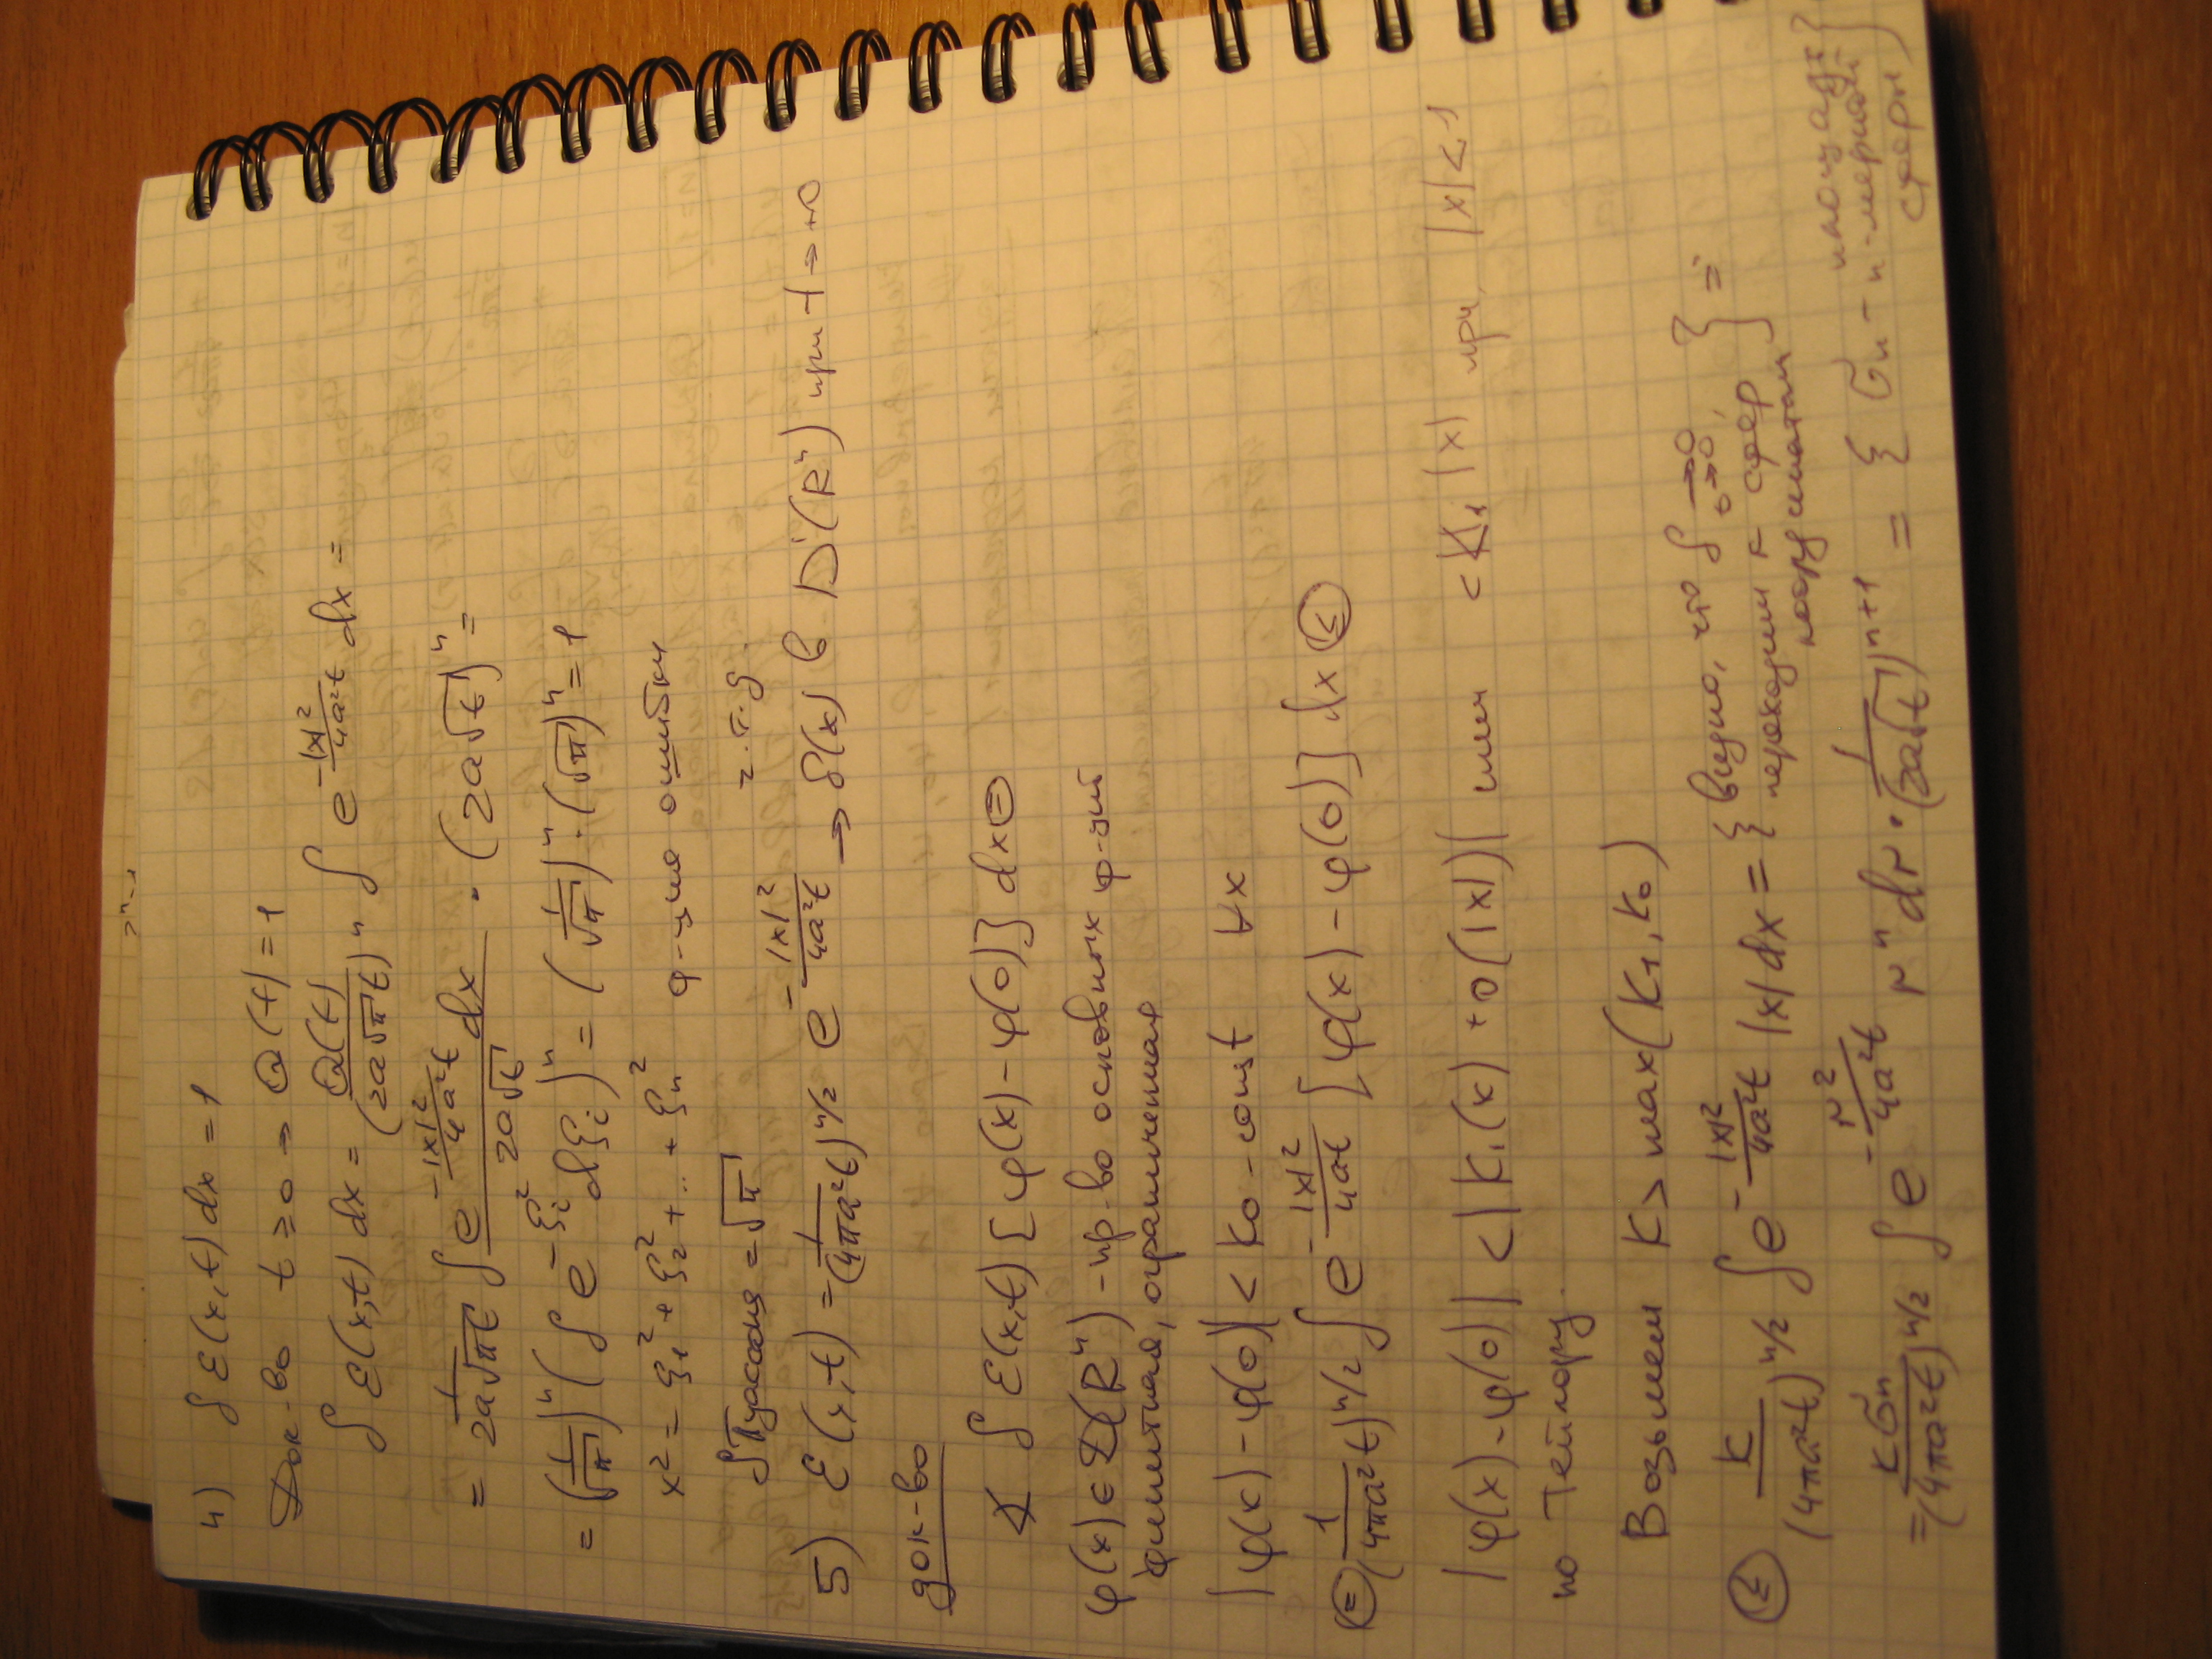 4) ∫ ℰ(x,t) dx = 1
Док-во t ≥ 0 ⇒ Θ(t) = 1
∫ ℰ(x,t) dx = Θ(t)/(2a√πt)ⁿ ∫ e^(-|x|²/4a²t) dx =
= 1/(2a√πt) ∫ e^(-|x|²/4a²t) dx/(2a√t) · (2a√t)ⁿ =
= (1/√π)ⁿ (∫ e^(-ξᵢ²) dξᵢ)ⁿ = (1/√π)ⁿ · (√π)ⁿ = 1
x² = ξ₁² + ξ₂² + .. + ξₙ² ф-ция ошибки
∫ Пуассона = √π ч.т.д.
5) ℰ(x,t) = 1/(4πa²t)^(n/2) e^(-|x|²/4a²t) → δ(x) в D'(Rⁿ) при t → +0
док-во
∢ ∫ ℰ(x,t) [φ(x) - φ(0)] dx ⊜
φ(x) ∈ D(Rⁿ) - пр-во основных ф-ций
финитная, ограниченная
|φ(x) - φ(0)| < K₀ - const ∀x
⊜ 1/(4πa²t)^(n/2) ∫ e^(-|x|²/4at) [φ(x) - φ(0)] dx ≤
|φ(x) - φ(0)| < |K₁(x) + o(|x|)| или < K₁|x| при |x| < 1
по Тейлору.
Возьмем K > max(K₁, K₀)
≤ K/(4πa²t)^(n/2) ∫ e^(-|x|²/4a²t) |x| dx = { видно, что ∫ → 0, переходим к сфер координатам } =
= Kσₙ/(4πa²t)^(n/2) ∫ e^(-r²/4a²t) rⁿ dr · 1/(2a√t)ⁿ⁺¹ = { σₙ - площадь n-мерной сферы }